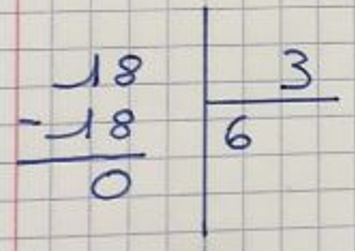 18 3
-18 6
0